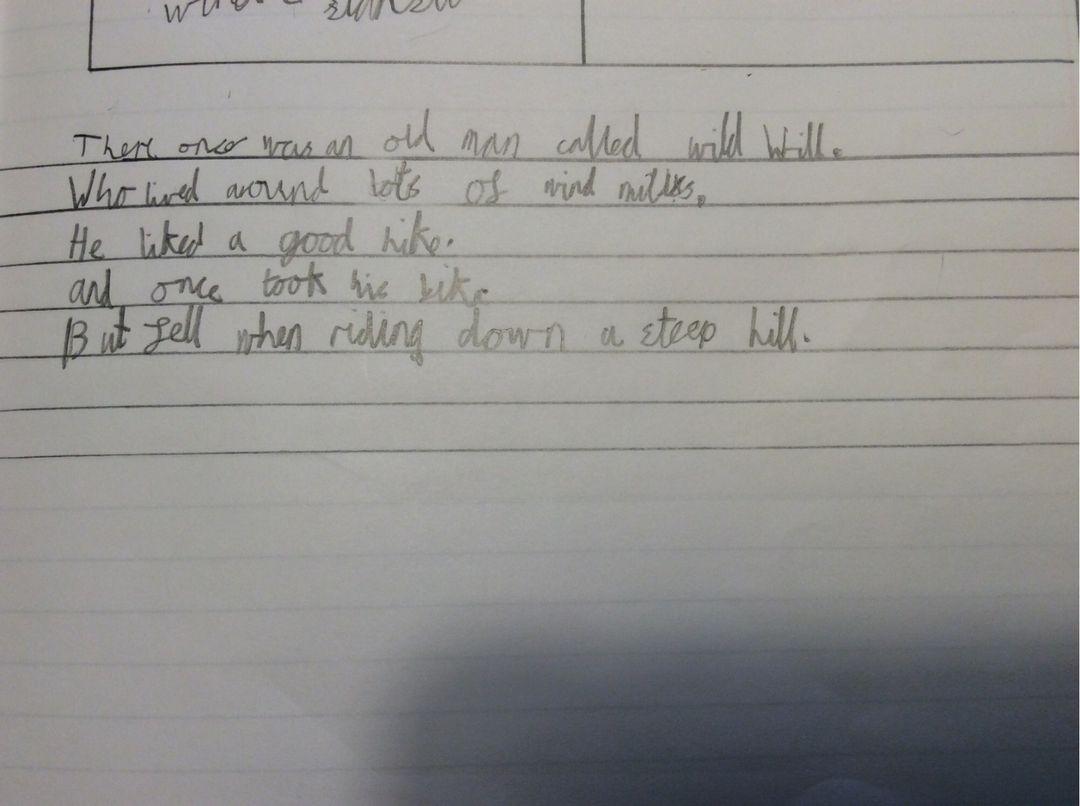 There once was an old man called wild Will.
Who lived around lots of wind mills.
He liked a good hike.
and once took his bike
But fell when riding down a steep hill.